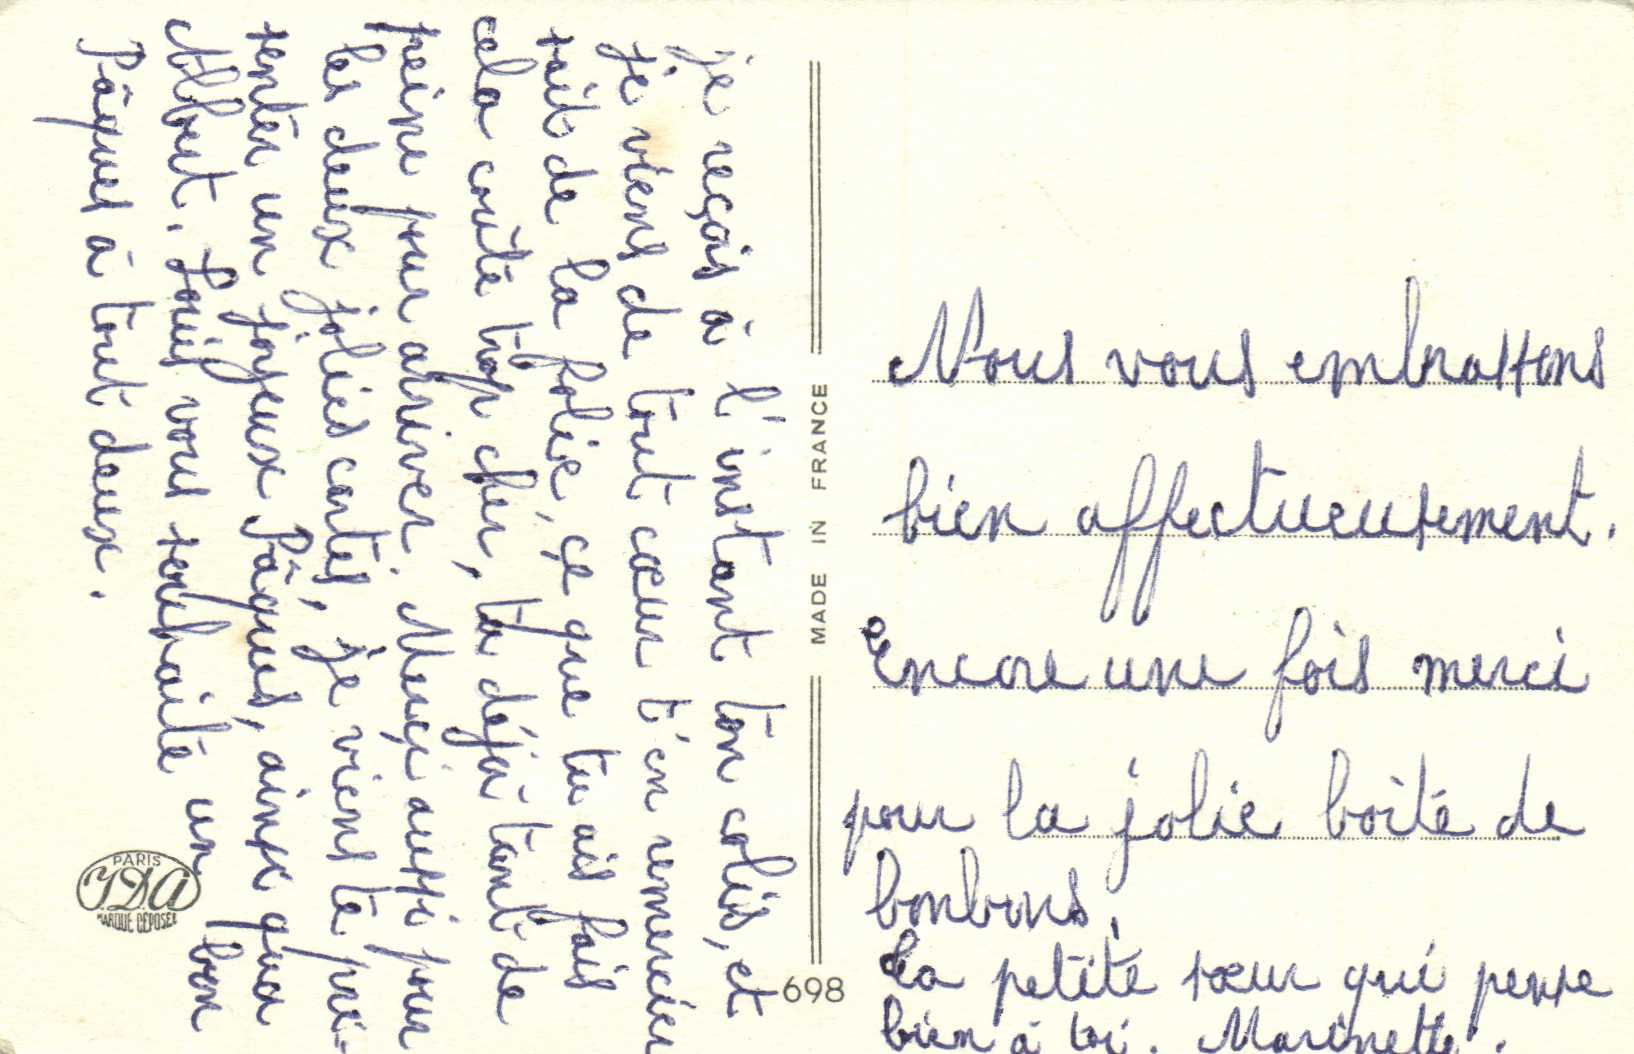 je reçois à l'instant ton colis, et
je viens de tout cœur t'en remercier
sait de la folie, çe que tu ais fais
cela coute trop cher, ta déjà tant de
peine pour ariver. Merçi aussi pour
les deux jolies cartes, je viens te pré-
senter un joyeux Pâques, ainsi qua
Albert. Louis vous souhaite un bon
Pâques à tout deux.
MADE IN FRANCE
698
PARIS
IDA
MARQUE DÉPOSÉE
Nous vous embrassons
bien affectueusement.
Encore une fois merci
pour la jolie boîte de
bonbons.
La petite sœur qui pense
bien à toi. Marinette.